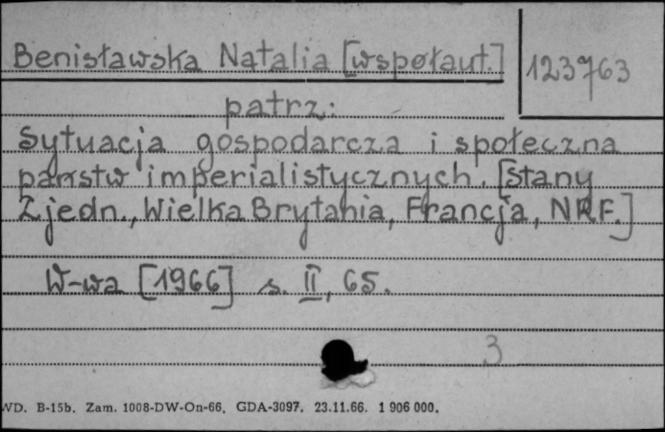 Benisławska Natalia [współaut.]
123763
patrz:
Sytuacja gospodarcza i społeczna
państw imperialistycznych. [Stany
Zjedn., Wielka Brytania, Francja, NRF.]
W-wa [1966] s. II, 65.
3
WD. B-15b. Zam. 1008-DW-On-66. GDA-3097. 23.11.66. 1 906 000.